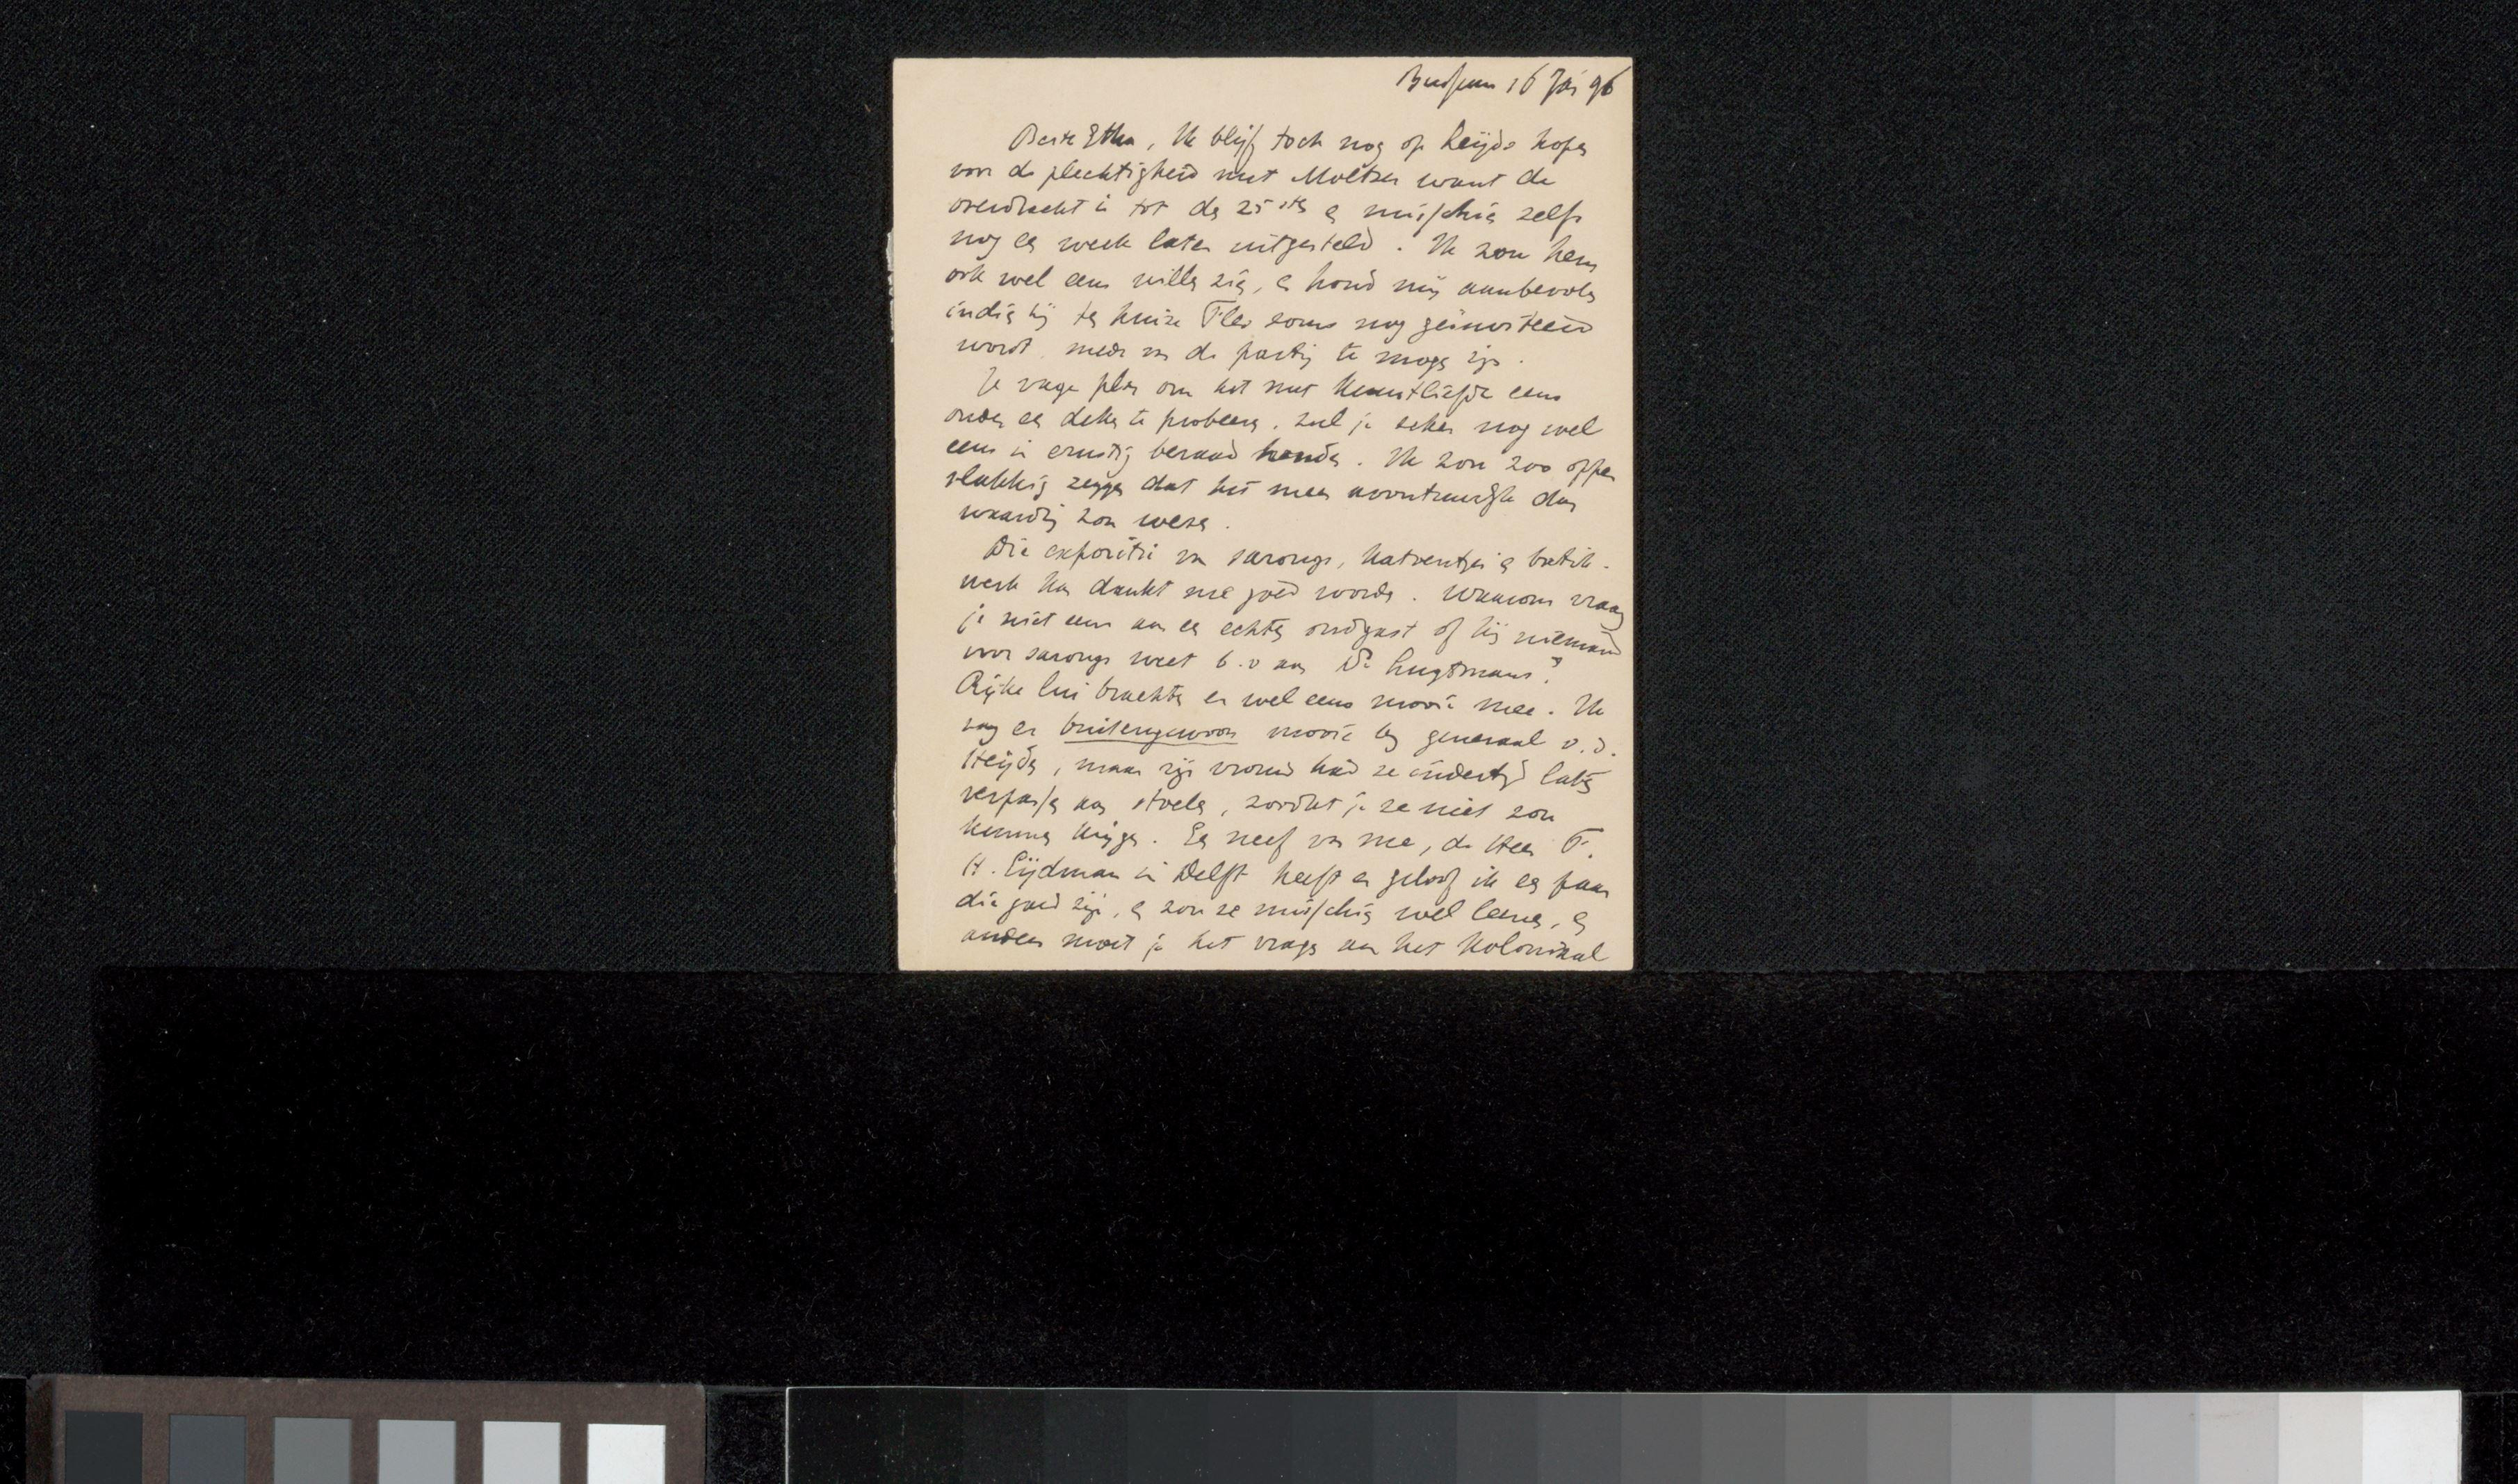 Bussum 16 Jan 96
Beste Etha, Ik blijf toch nog op Leijde hopen
voor de plechtigheid met Moltzer want de
overdracht is tot den 25sten en misschien zelfs
nog een week later uitgesteld. Ik zou hem
ook wel eens willen zien, en houd mij aanbevolen
indien hij ten huize Fles soms nog geïnviteerd
wordt, mede van de partij te mogen zijn.
Je vage plan om het met Kunstliefde eens
onder een deken te probeeren, zul je zeker nog wel
eens in ernstig beraad houden. Ik zou zoo opper
vlakkig zeggen dat het meer avontuurlijk dan
waardig zou wezen.
Die expositie van sarongs, katoentjes en batik-
werk kan dunkt me goed worden. Waarom vraag
je niet eens aan een echten oudgast of hij niemand
voor sarongs weet b.v aan Dr Lugtmans?
Rijke lui brachten er wel eens mooie mee. Ik
zag er buitengewoon mooie bij generaal v.d.
Heijden, maar zijn vrouw had ze indertijd laten
verpassen aan stoelen, zoodat je ze niet zou
kunnen krijgen. Een neef van me, de Heer F.
H. Eijdman in Delft heeft er geloof ik een paar
die goed zijn, en zou ze misschien wel leenen, en
anders moet je het vragen aan het Koloniaal